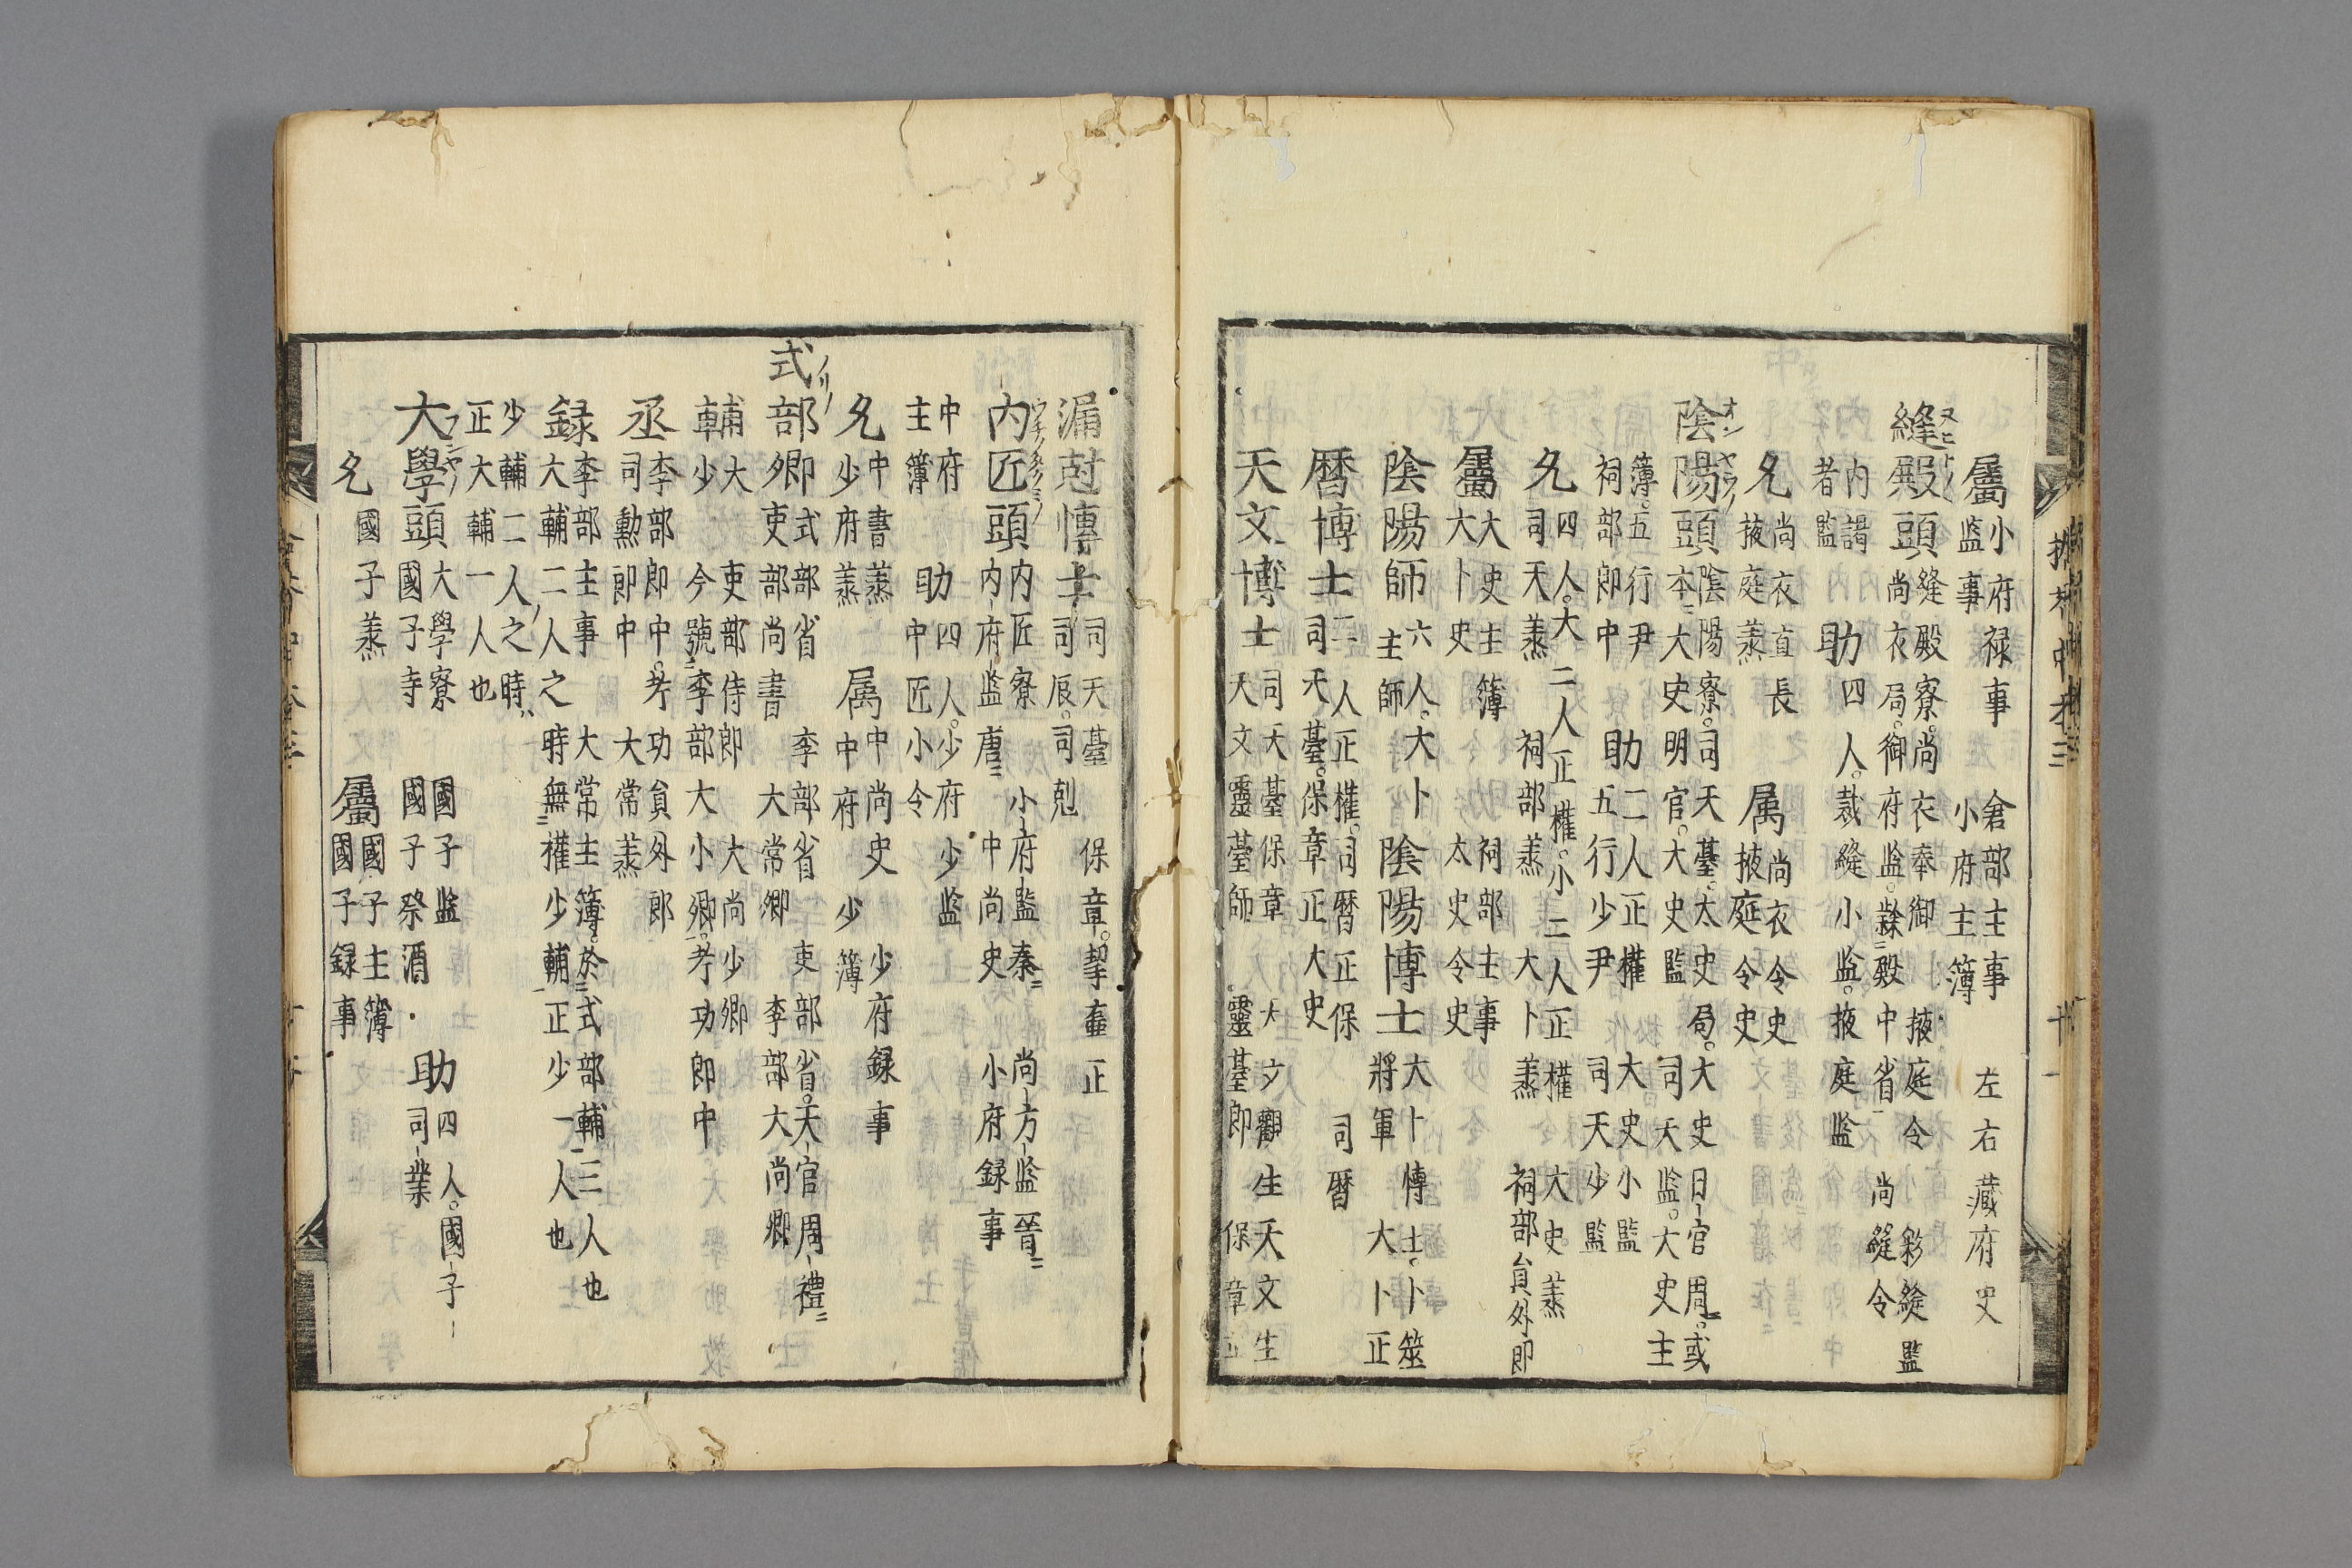 屬 小府禄事 倉部主事 左右藏府史
監事 小府主簿
縫殿頭 縫殿寮。尚衣奉御 掖庭令 彩縫監
尚衣局。御府監。殿中省 尚縫令
内謁者監 助四人。裁縫小監。掖庭監
允 尚衣直長 属 尚衣令史
掖庭丞 掖庭令史
陰陽頭 陰陽寮。司天臺。太史局。大史 日官 周。或
本大史明官。大史監 司天監。大史主
簿。五行尹 助二人正權 大史小監
祠部郎中 五行少尹 司天少監
允 四人。大二人正權。小二人正權 大史丞
司天丞 祠部丞 大卜丞 祠部員外郎
屬 大史主簿 祠部主事
大卜史 太史令史
陰陽師 六人。大卜 陰陽博士 大卜博士。卜筮
主師 將軍 大卜正
曆博士 二人正權。司曆正保 司曆
司天臺。保章正大史
天文博士 司天臺保章 文觀生天文生
天文靈臺師 靈臺郎 保章正
漏尅博士 司天臺 保章。挈壷正
司辰。司剋
内匠頭 内匠寮 小府監秦 尚方監晋
内府監唐 中尚史 小府録事
中府 助四人。少府少監
主簿 中匠小令
允 中書丞 属 中尚史 少府録事
少府丞 中府 少簿
式部卿 式部省 李部省 吏部省。天官周禮
吏部尚書 大常卿 李部大尚卿
輔 大 吏部侍郎 大尚少卿
輔 少 今號李部大小卿。考功郎中
丞 李部郎中。考功員外郎
司勳郎中 大常丞
録 李部主事 大常主簿。於式部輔三人也
大輔二人之時無權少輔正少一人也
少輔二人之時
正大輔一人也
大學頭 大學寮 國子監 助 四人。國子
國子寺 國子祭酒 司業
允 國子丞 屬 國子主簿
國子録事